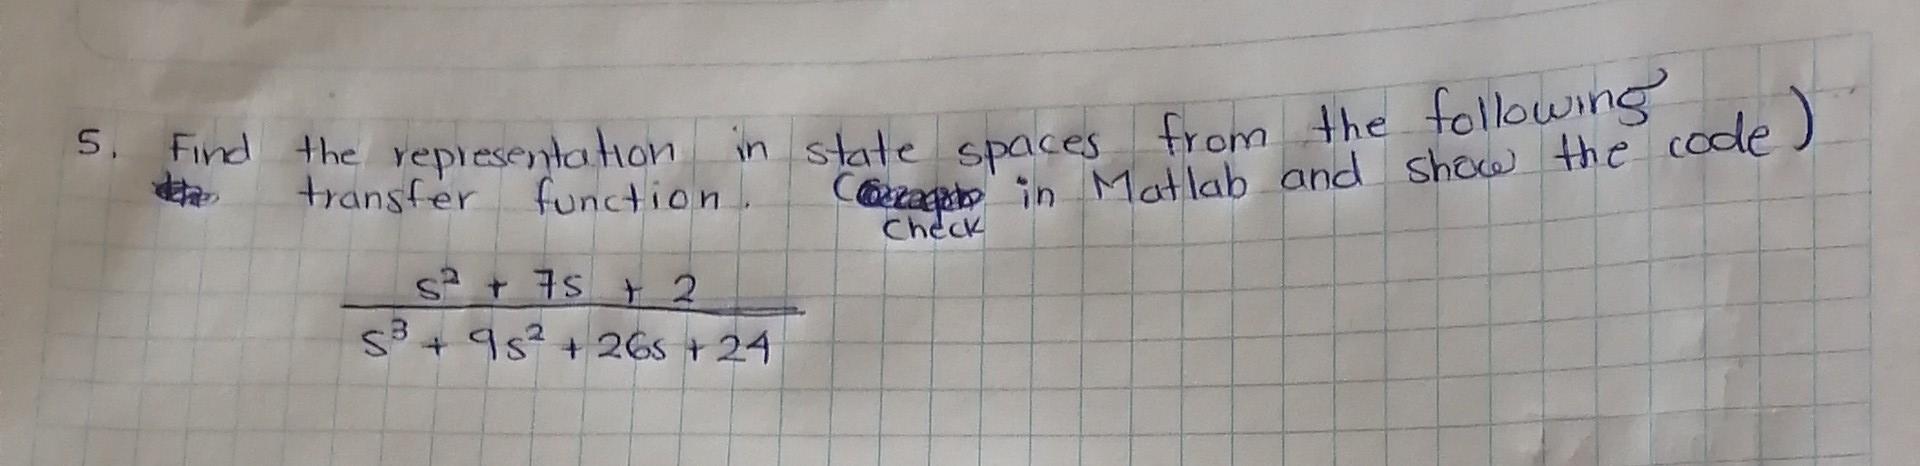 5. Find the representation in state spaces from the following
transfer function. ( in Matlab and show the code)
check
s² + 7s + 2
s³ + 9s² + 26s + 24